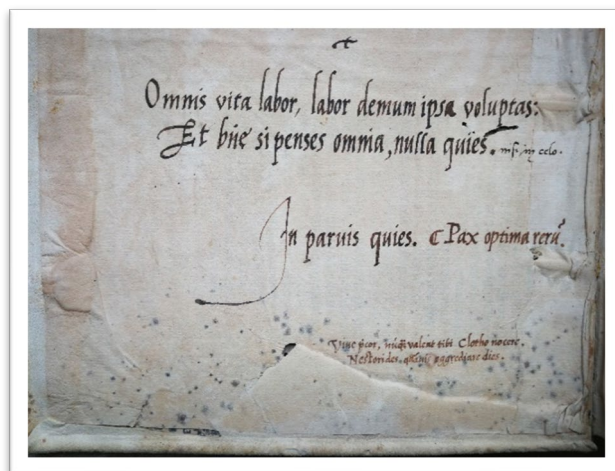 Omnis vita labor, labor demum ipsa voluptas:
Et bñe si penses omnia, nulla quies. nisi in celo.
In paruis quies. ⊄ Pax optima rerũ.
valeat tibi Clotho nocere.
Nestorides, aggrediare dies.